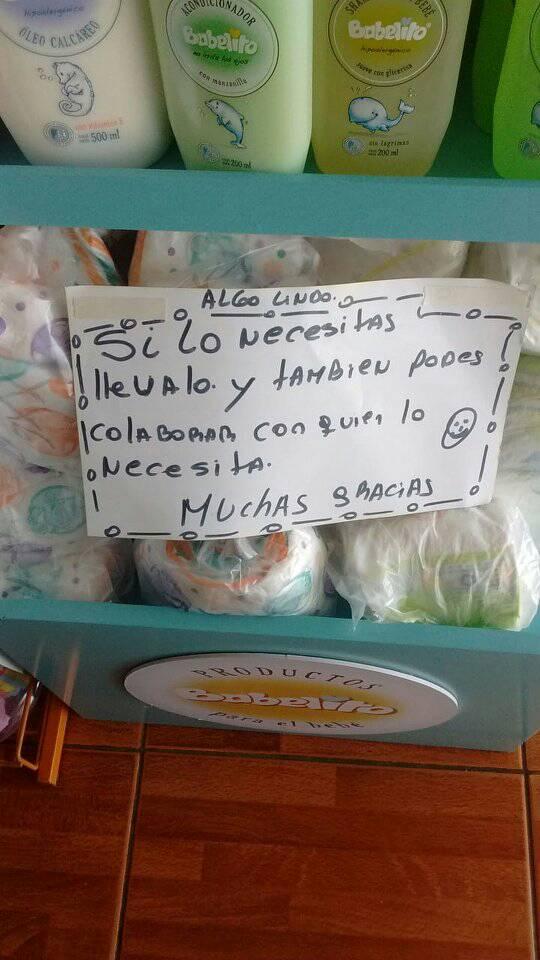 hipoalergénico
OLEO CALCAREO
con vitamina E
500 ml
ACONDICIONADOR
Babelito
no irrita los ojos
con manzanilla
200 ml
Babelito
hipoalergénico
suave con glicerina
sin lágrimas
200 ml
ALGO LINDO.
Si LO NECESITAS
llEVALO. Y TAMBIEN PODES
COLABORAR CON QUIEN lo
NECESITA.
MUCHAS GRACIAS
PRODUCTOS
Babelito
para el bebé